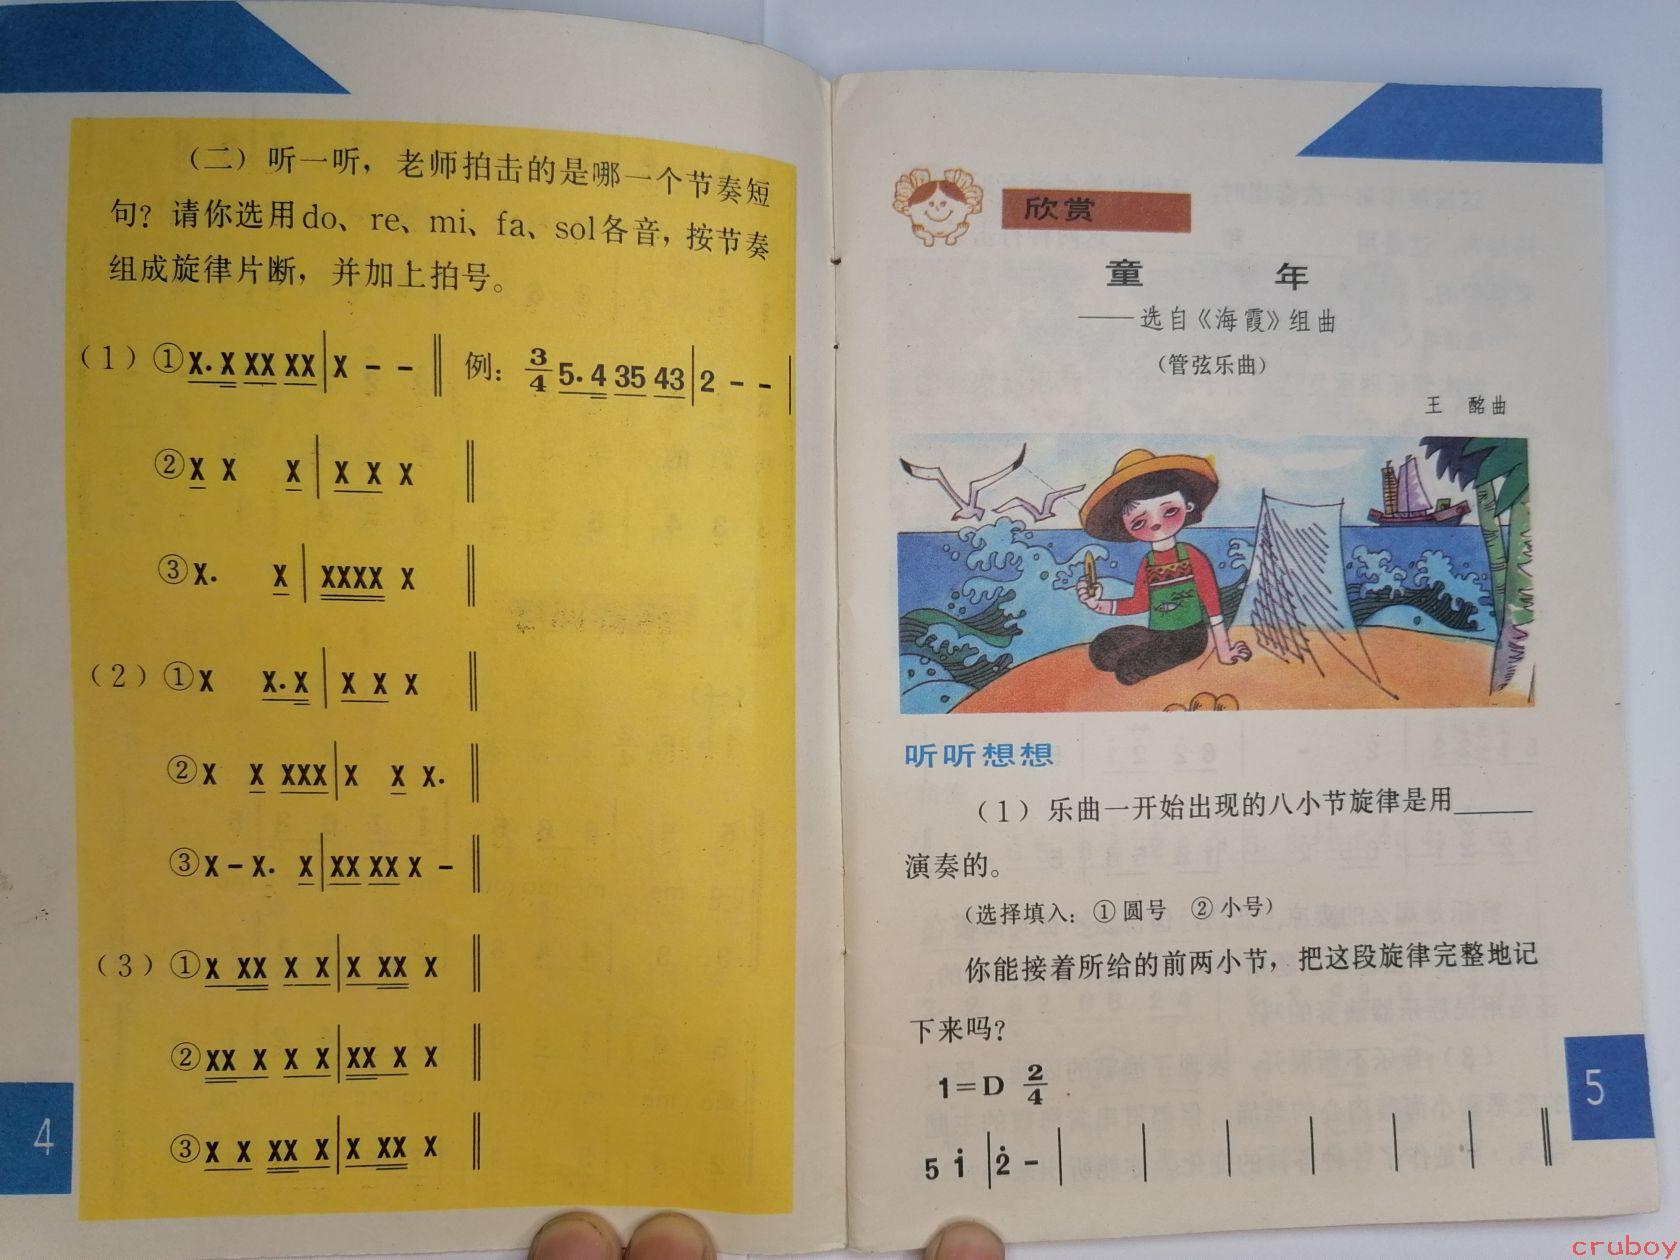 （二）听一听，老师拍击的是哪一个节奏短
句？请你选用do、re、mi、fa、sol各音，按节奏
组成旋律片断，并加上拍号。
（1）①X. X XX XX | X - - ‖ 例：3/4 5. 4 35 43 | 2 - - |
②X X X | X X X ‖
③X. X | XXXX X ‖
（2）①X X. X | X X X ‖
②X X XXX | X X X. ‖
③X - X. X | XX XX X - ‖
（3）①X XX X X | X XX X ‖
②XX X X X | XX X X ‖
③X X XX X | X XX X ‖
4
欣赏
童 年
——选自《海霞》组曲
（管弦乐曲）
王 酩曲
听听想想
（1）乐曲一开始出现的八小节旋律是用______
演奏的。
（选择填入：①圆号 ②小号）
你能接着所给的前两小节，把这段旋律完整地记
下来吗？
1＝D 2/4
5 i̇ | 2̇ - | | | | | | ‖
5
cruboy